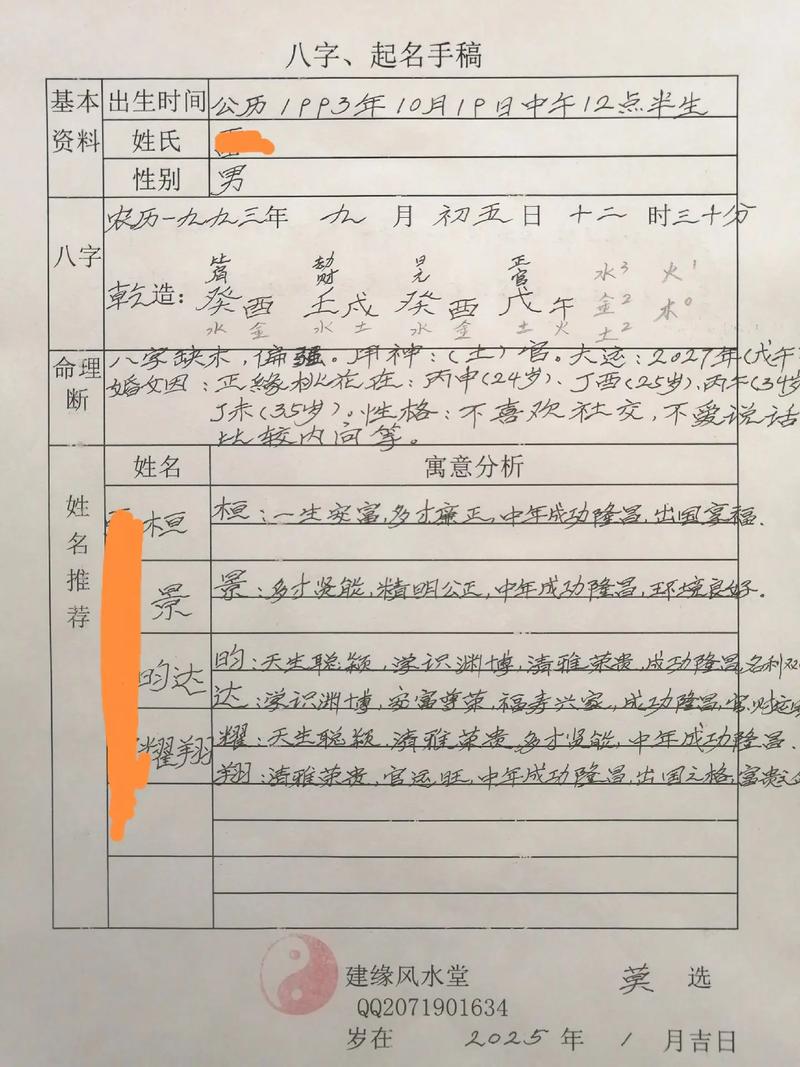 八字、起名手稿
基本资料 出生时间 公历1993年10月19日中午12点半生
姓氏
性别 男
八字 农历一九九三年 九 月 初五日 十二 时三十分
比肩 劫财 日元 正官 水3 火1
乾造：癸酉 壬戌 癸酉 戊午 金2 木0
水 金 水 土 水 金 土 火 土2
命理断 八字缺木，偏强。用神：（土）官。大运：2027年（戊午
婚姻：正缘桃花在：丙申（24岁）、丁酉（25岁）、丙午（34岁
丁未（35岁）。性格：不喜欢社交，不爱说话
比较内向等。
姓名推荐 姓名 寓意分析
桓 桓：一生安富，多才廉正，中年成功隆昌，出国享福．
景 景：多才贤能，精明公正，中年成功隆昌，环境良好．
昀达 昀：天生聪颖，学识渊博，清雅荣贵，成功隆昌，名利双
达：学识渊博，安富尊荣，福寿兴家，成功隆昌，官，财运
耀翔 耀：天生聪颖，清雅荣贵，多才贤能，中年成功隆昌．
翔：清雅荣贵，官运旺，中年成功隆昌，出国之格，富贵
建缘风水堂 莫 选
QQ2071901634
岁在 2025 年 1 月吉日